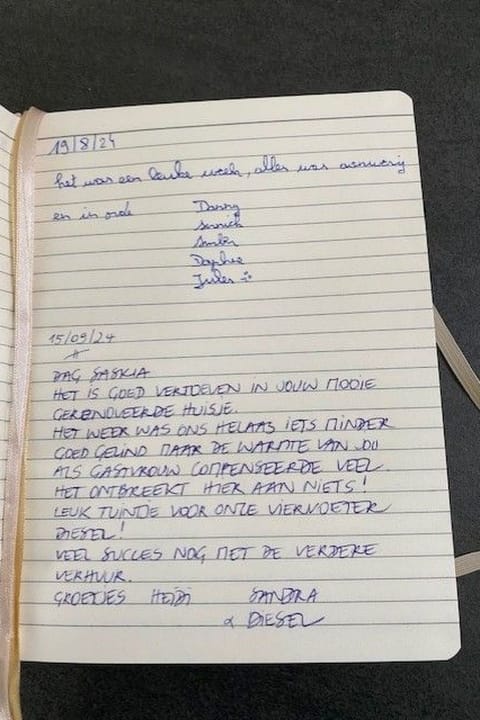 19/8/24
het was een leuke week, alles was aanwezig
en in orde Danny
Amber
Daphne
Jules
15/09/24
DAG SASKIA
HET IS GOED VERTOEVEN IN JOUW MOOIE
GERENOVEERDE HUISJE.
HET WEER WAS ONS HELAAS IETS MINDER
GOED GEZIND MAAR DE WARMTE VAN JOU
ALS GASTVROUW COMPENSEERDE VEEL.
HET ONTBREEKT HIER AAN NIETS!
LEUK TUINTJE VOOR ONZE VIERVOETER
DIESEL!
VEEL SUCCES NOG MET DE VERDERE
VERHUUR.
GROETJES HEIDI SANDRA
& DIESEL